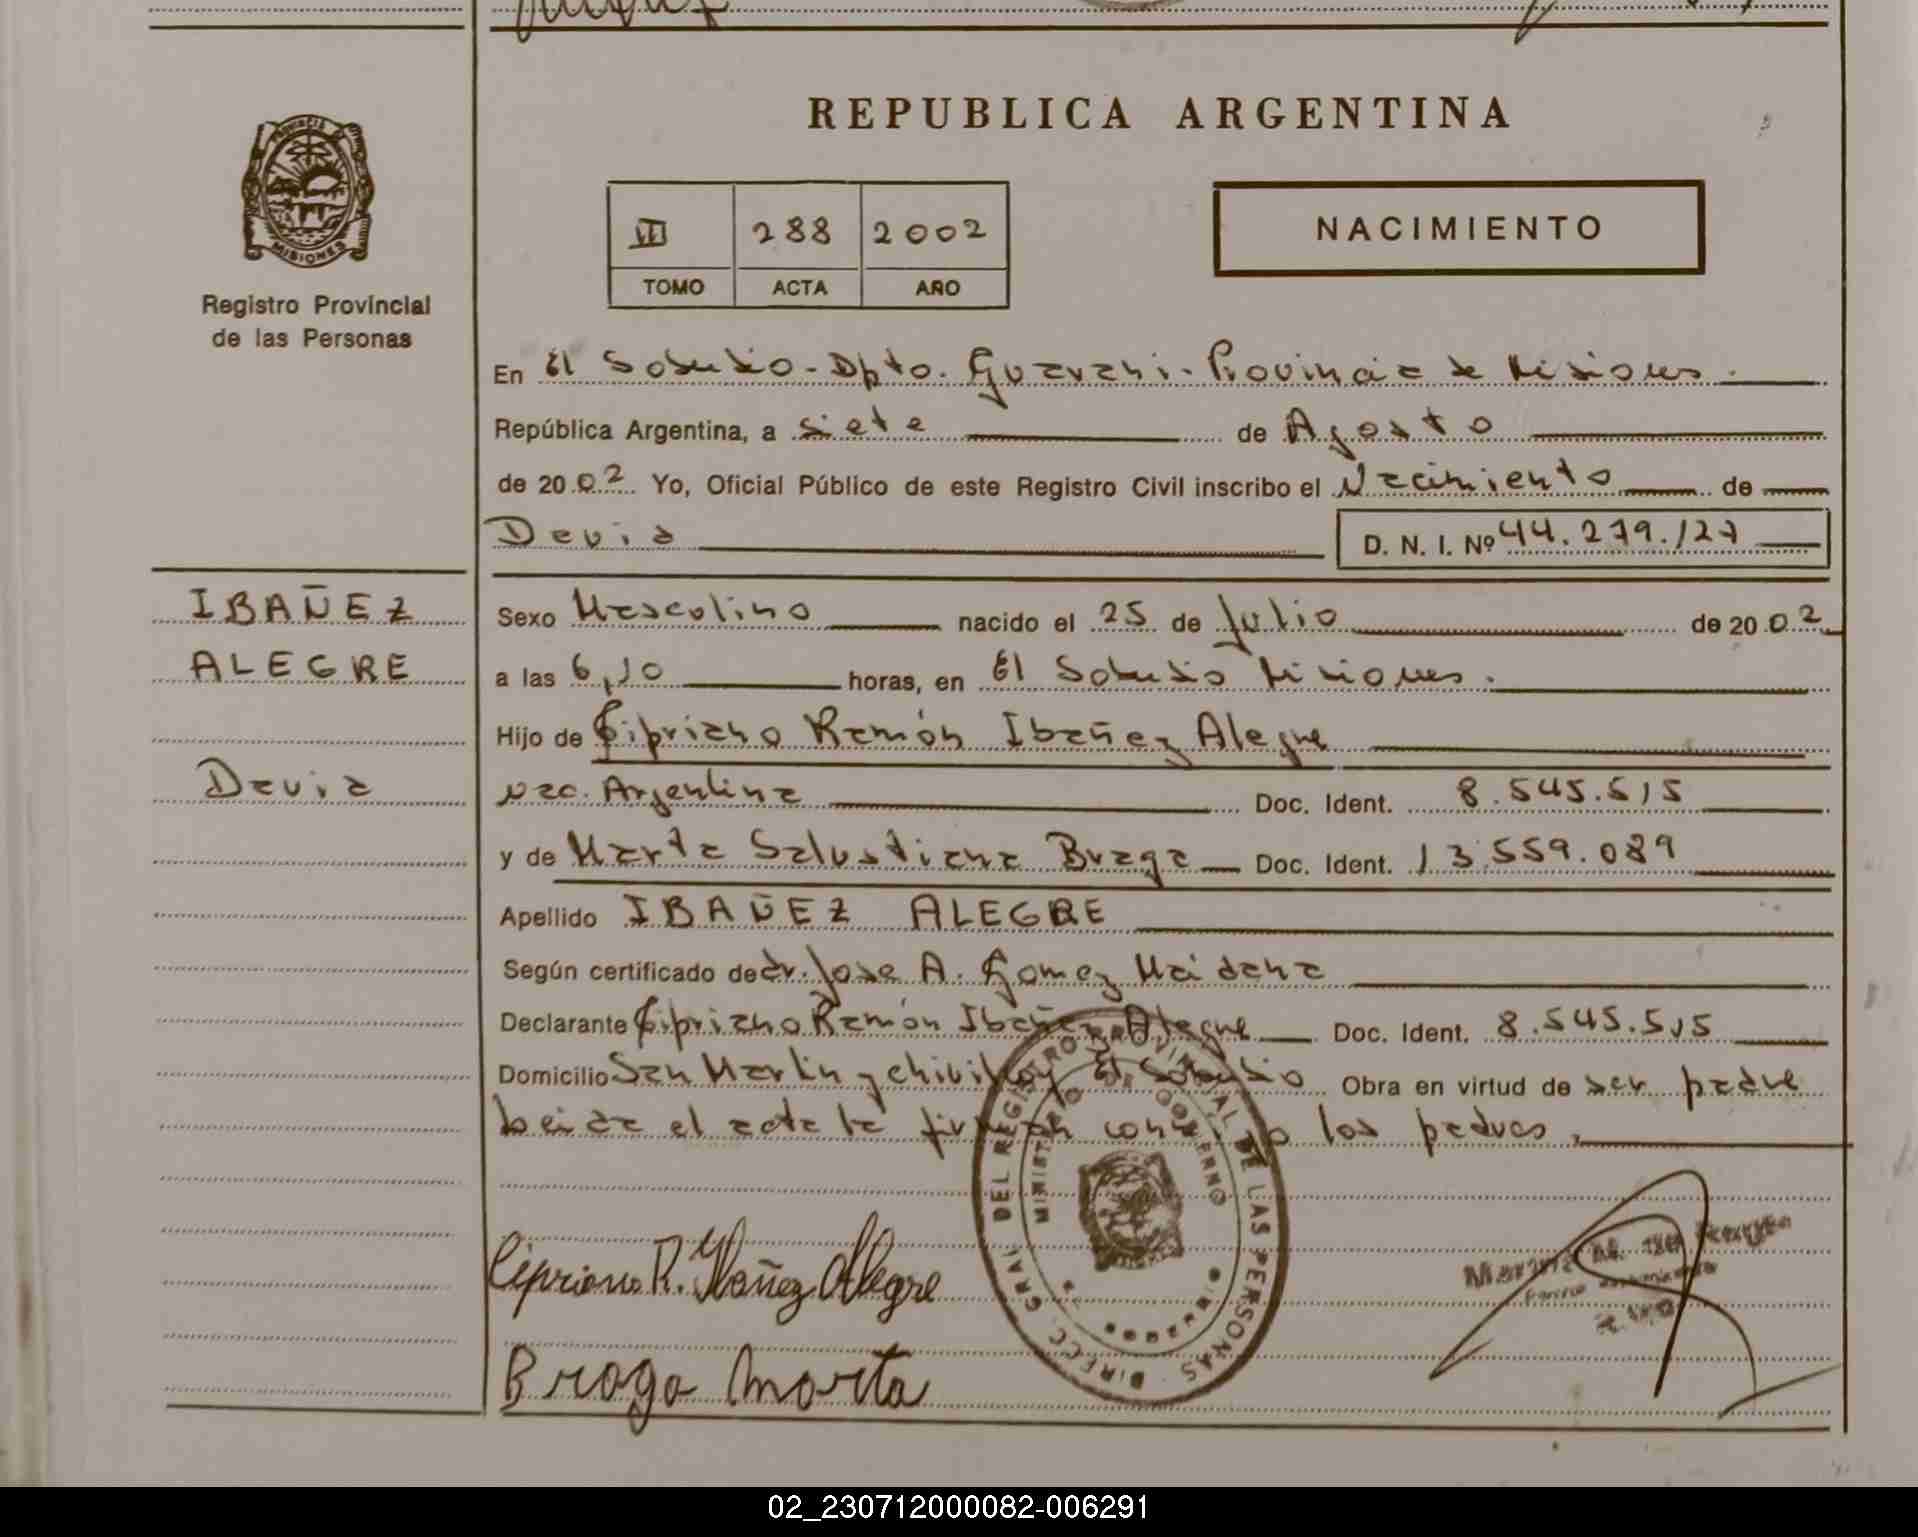 REPUBLICA ARGENTINA
PROVINCIA DE
MISIONES
Registro Provincial
de las Personas
III 288 2002
TOMO ACTA AÑO
NACIMIENTO
En El Soberbio - Dpto. Guarani - Provincia de Misiones.
República Argentina, a siete de Agosto
de 2002 Yo, Oficial Público de este Registro Civil inscribo el Nacimiento de
David D. N. I. Nº 44.279.127
IBAÑEZ
ALEGRE
David
Sexo Masculino nacido el 25 de Julio de 2002
a las 6,10 horas, en El Soberbio Misiones.
Hijo de Cipriano Ramón Ibañez Alegre
nac. Argentina Doc. Ident. 8.545.515
y de Marta Salustiana Braga Doc. Ident. 13.559.089
Apellido IBAÑEZ ALEGRE
Según certificado de dr. Jose A. Gomez Maidana
Declarante Cipriano Ramón Ibañez Alegre Doc. Ident. 8.545.515
Domicilio San Martin y chivilcoy El Soberbio Obra en virtud de ser padre
Leida el acta la firman conmigo los padres.
DIRECC. GRAL DEL REGISTRO PROVINCIAL DE LAS PERSONAS
MINISTERIO DE GOBIERNO
MISIONES
Cipriano R. Ibañez Alegre
Braga Marta
02_230712000082-006291